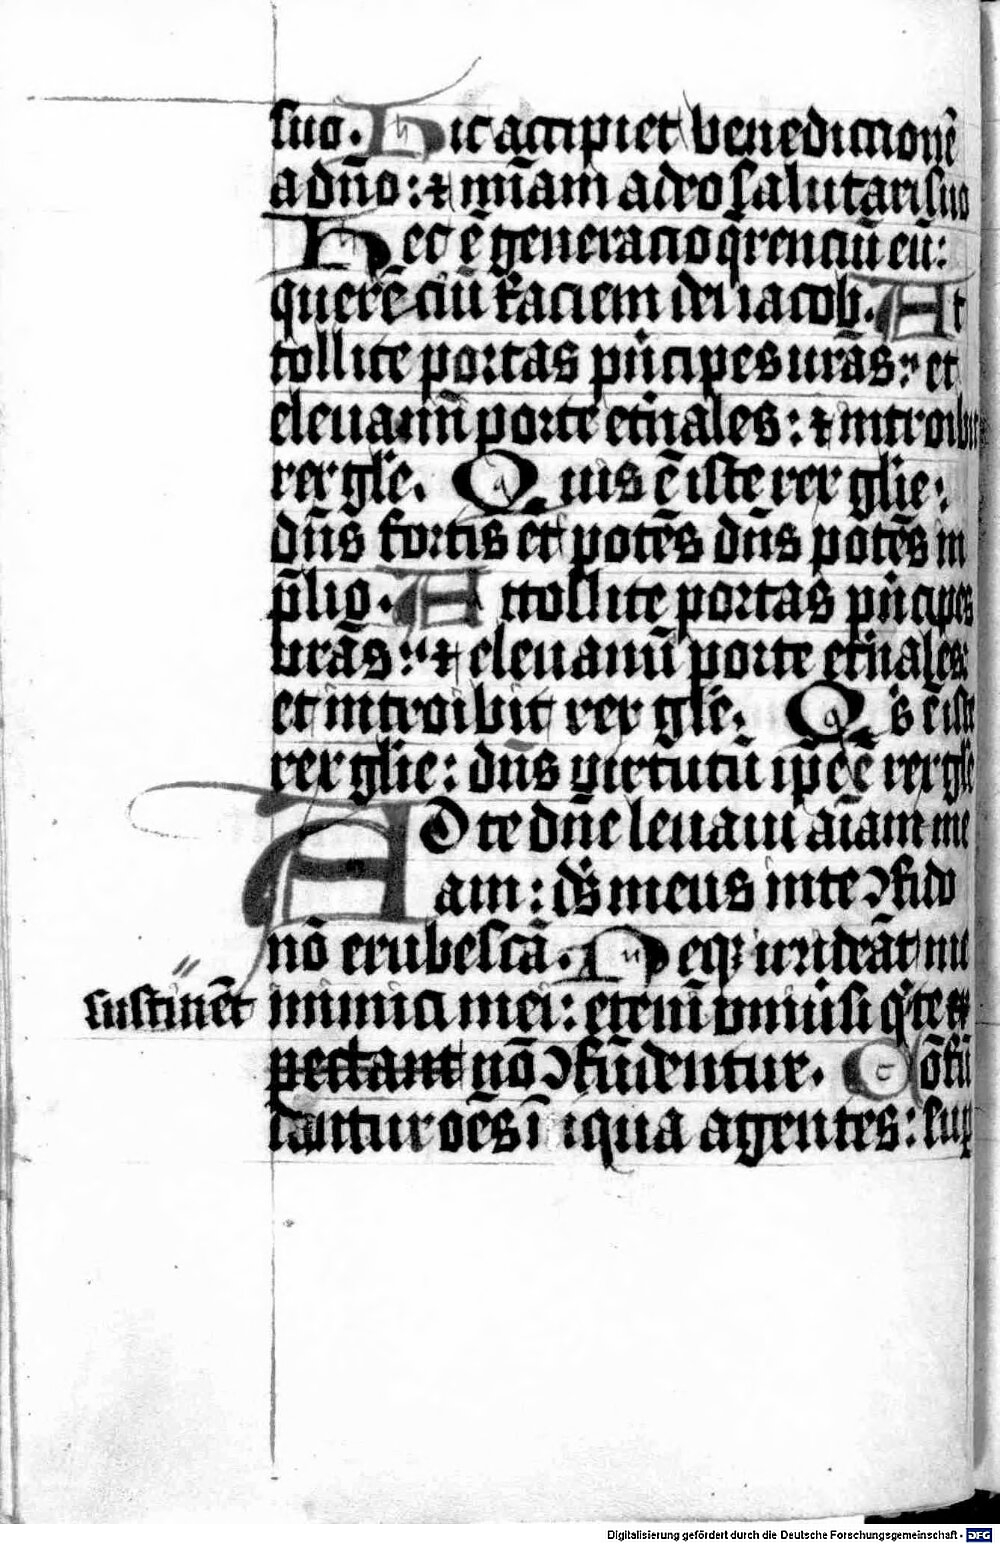 suo. Hic accipiet benedictionē
a dño: ⁊ mīam a deo salutari suo
Hec ē generacio q̄renciū eū:
querēciū faciem dei iacob. At
tollite portas pͥncipes urās: et
eleuamī porte et̄nales: ⁊ introibit
rex glīe. Quis ē iste rex glīe:
dūs fortis et potēs dūs potēs in
p̄lio. Attollite portas pͥncipes
urās: ⁊ eleuamī porte et̄nales:
et introibit rex glīe. Qͥs ē iste
rex glīe: dūs virtutū ip̄e ē rex glīe
AD te dūe leuaui aīam me
am: ds̄ meus in te ꝯfido
nō erubescā. Neqꝫ irrideāt me
sustinēt
inimici mei: etenī vniūsi q̇ te ex
pectant nō ꝯfūdentur. Cōfū
dantur oēs iniqua agentes: sup